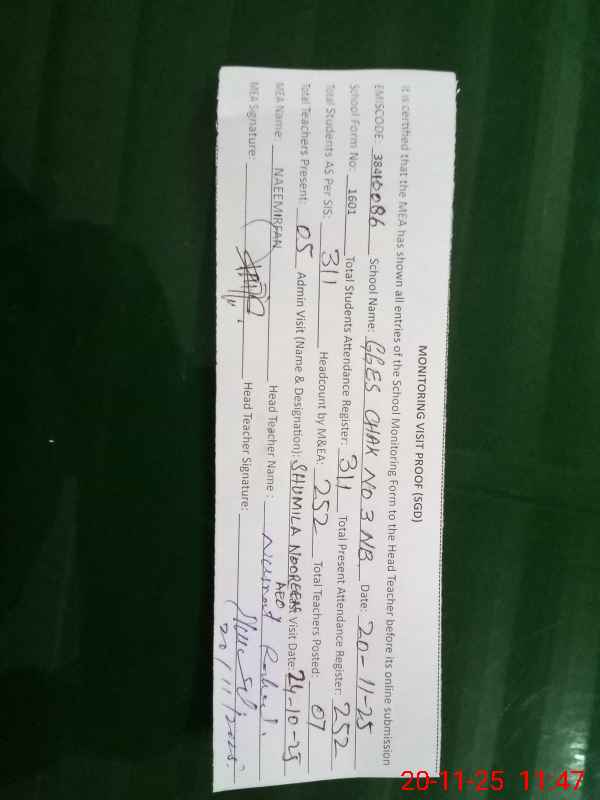 MONITORING VISIT PROOF (SGD)
It is certified that the MEA has shown all entries of the School Monitoring Form to the Head Teacher before its online submission
EMISCODE 38410086 School Name: GGES CHAK NO 3 NB Date: 20-11-25
School Form No: 1601 Total Students Attendance Register: 311 Total Present Attendance Register: 252
Total Students AS Per SIS: 311 Headcount by M&EA: 252 Total Teachers Posted: 07
Total Teachers Present: 05 Admin Visit (Name & Designation): SHUMILA NOOREEN AEO Visit Date: 24-10-25
MEA Name: NAEEMIRFAN Head Teacher Name :
MEA Signature: Head Teacher Signature:
20/11/2025
20-11-25 11:47